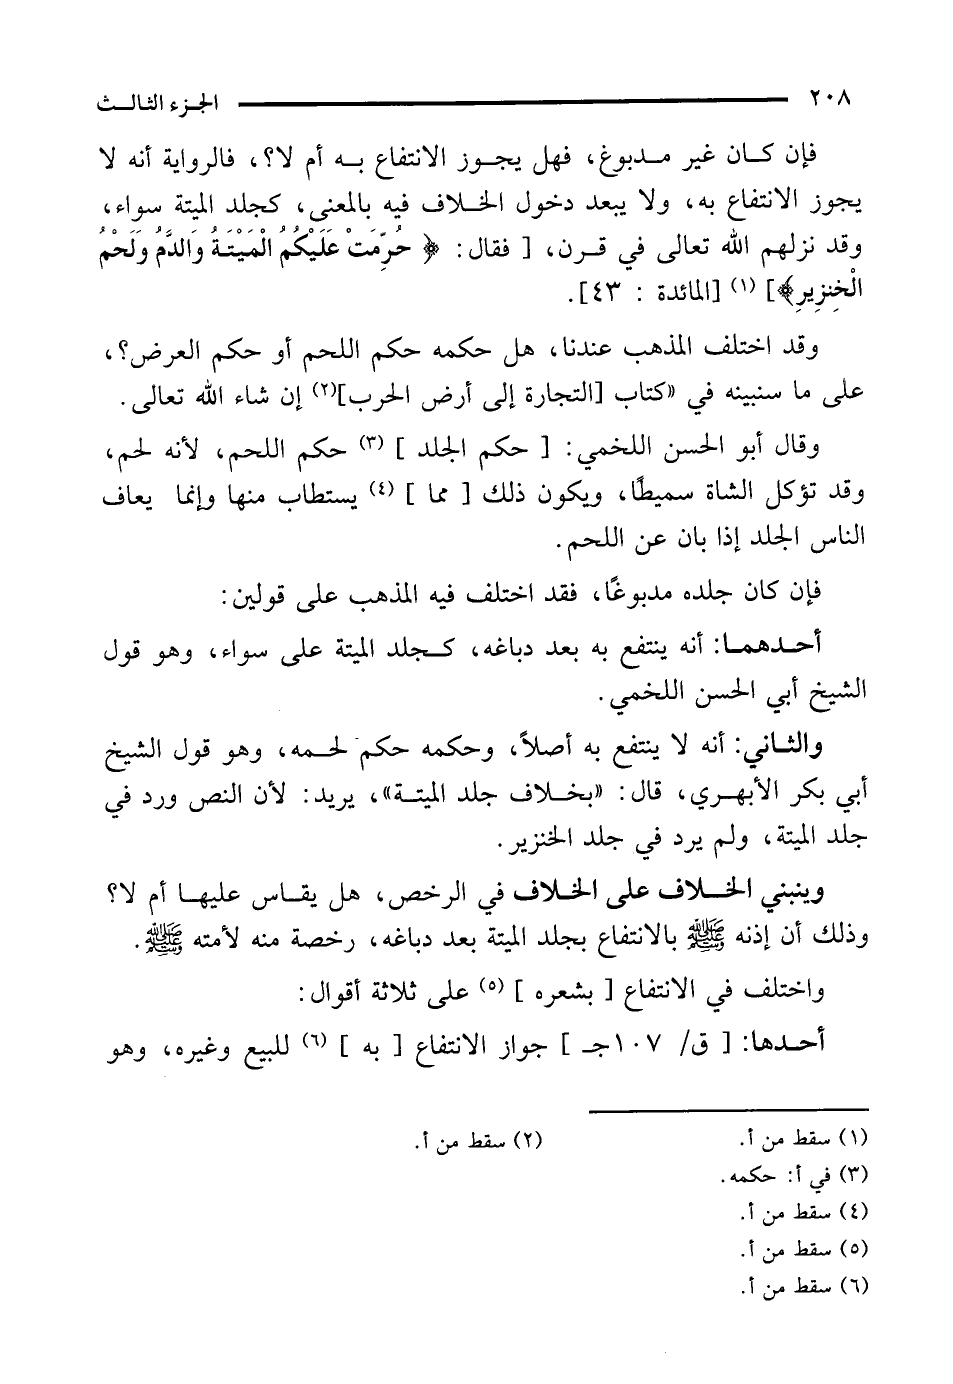 ٢٠٨ الجزء الثالث
فإن كان غير مدبوغ، فهل يجوز الانتفاع به أم لا؟، فالرواية أنه لا
يجوز الانتفاع به، ولا يبعد دخول الخلاف فيه بالمعنى، كجلد الميتة سواء،
وقد نزلهم الله تعالى في قرن، [ فقال: ﴿ حُرِّمَتْ عَلَيْكُمُ الْمَيْتَةُ وَالدَّمُ وَلَحْمُ
الْخِنزِيرِ﴾] (١) [المائدة : ٤٣].
وقد اختلف المذهب عندنا، هل حكمه حكم اللحم أو حكم العرض؟،
على ما سنبينه في «كتاب [التجارة إلى أرض الحرب](٢) إن شاء الله تعالى.
وقال أبو الحسن اللخمي: [ حكم الجلد ] (٣) حكم اللحم، لأنه لحم،
وقد تؤكل الشاة سميطًا، ويكون ذلك [ مما ] (٤) يستطاب منها وإنما يعاف
الناس الجلد إذا بان عن اللحم.
فإن كان جلده مدبوغًا، فقد اختلف فيه المذهب على قولين:
أحدهما: أنه ينتفع به بعد دباغه، كجلد الميتة على سواء، وهو قول
الشيخ أبي الحسن اللخمي.
والثاني: أنه لا ينتفع به أصلاً، وحكمه حكم لحمه، وهو قول الشيخ
أبي بكر الأبهري، قال: «بخلاف جلد الميتة»، يريد: لأن النص ورد في
جلد الميتة، ولم يرد في جلد الخنزير.
وينبني الخلاف على الخلاف في الرخص، هل يقاس عليها أم لا؟
وذلك أن إذنه ﷺ بالانتفاع بجلد الميتة بعد دباغه، رخصة منه لأمته ﷺ.
واختلف في الانتفاع [ بشعره ] (٥) على ثلاثة أقوال:
أحدها: [ ق/ ١٠٧جـ ] جواز الانتفاع [ به ] (٦) للبيع وغيره، وهو
(١) سقط من أ. (٢) سقط من أ.
(٣) في أ: حكمه.
(٤) سقط من أ.
(٥) سقط من أ.
(٦) سقط من أ.